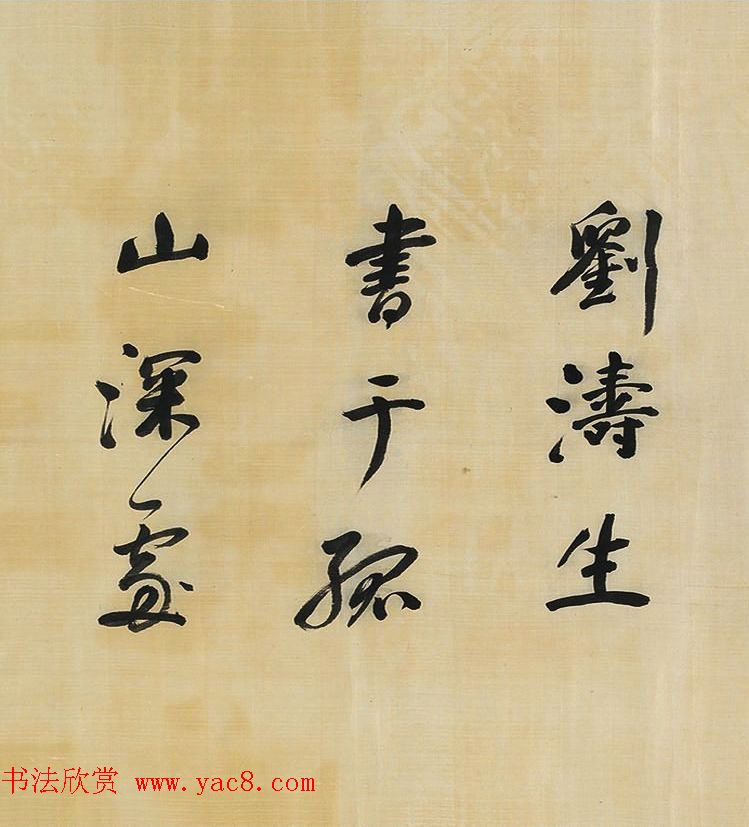 劉濤生
書于孤
山深處
书法欣赏 www.yac8.com